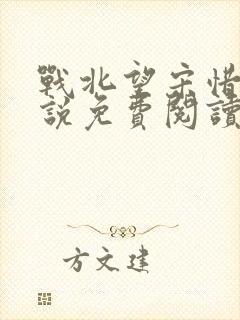 戰北望宋惜
說免費閱讀
方文建